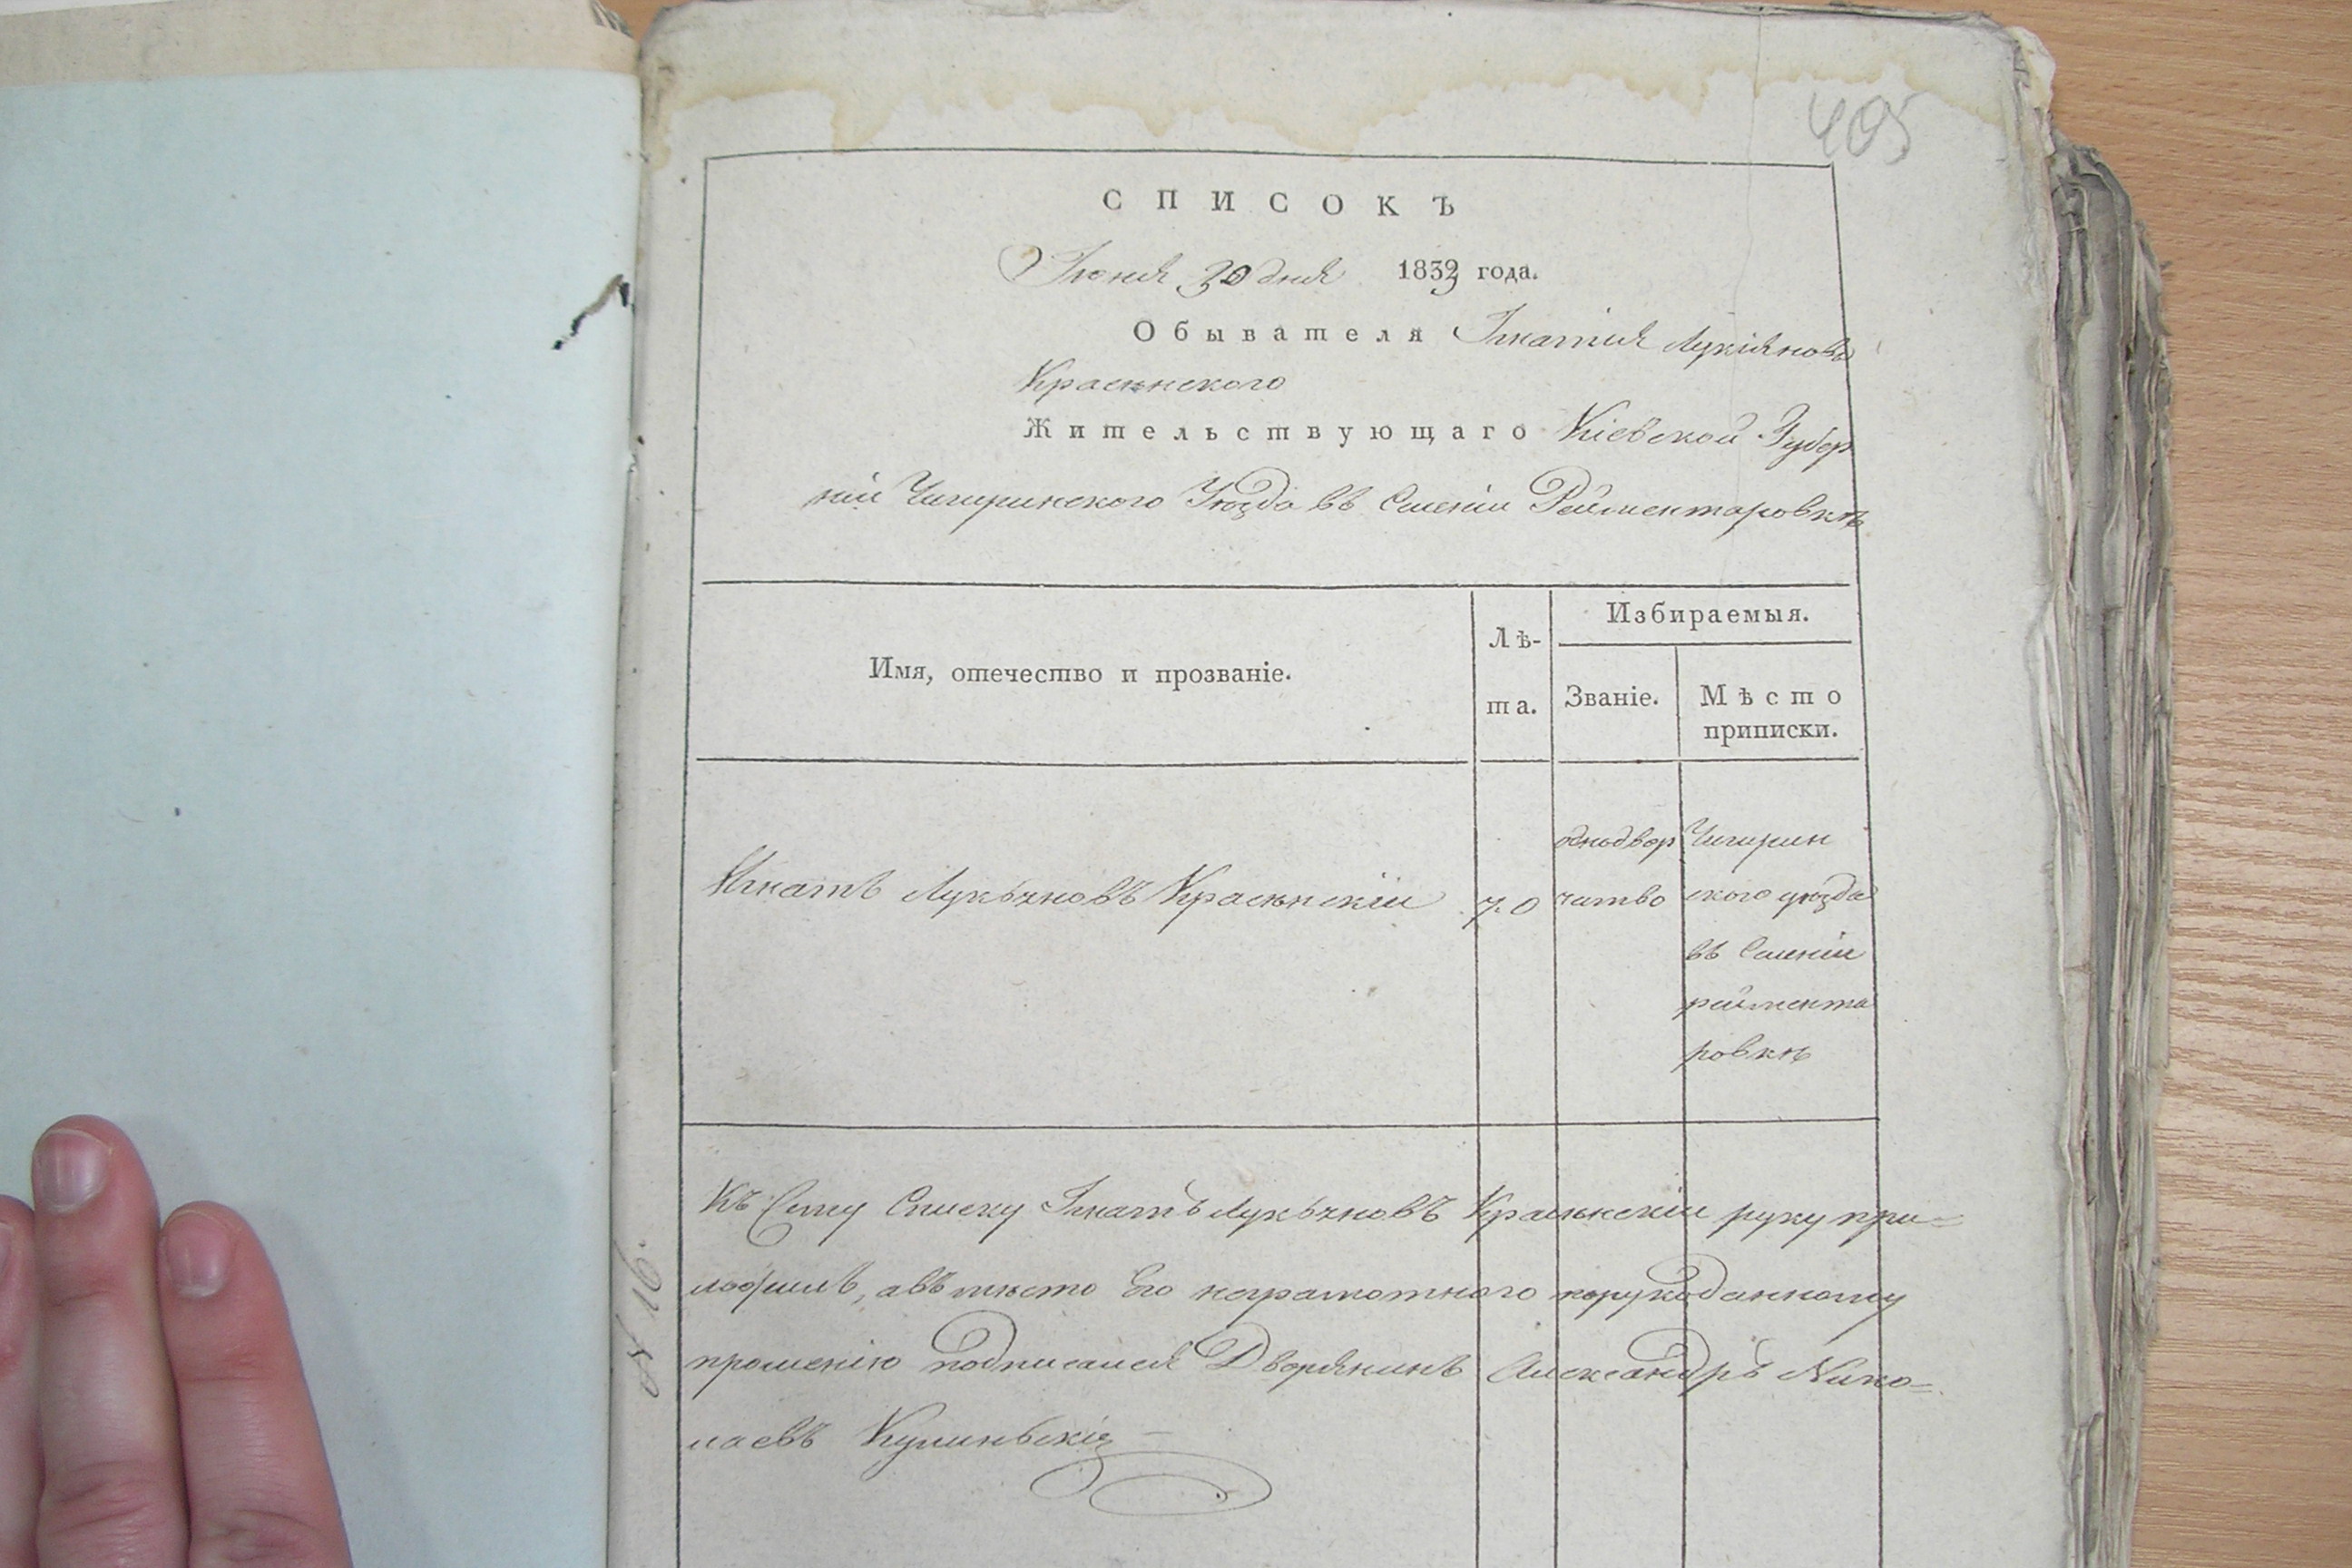 405
СПИСОКЪ
Іюня 30 дня 1832 года.
Обывателя Игнатія Лукіянова
Красѣнского
Жительствующаго Кіевской Губер
ніи Чигиринского Уѣзда въ Селеніи Рейментаровкѣ
Имя, отечество и прозваніе.
Лѣ-
та.
Избираемыя.
Званіе.
Мѣсто
приписки.
Игнатъ Лукьяновъ Красѣнскій
70
однодвор
чиство
Чигирин
ского уѣзда
въ Селеніи
реймента
ровкѣ
Къ Сему Списку Игнатъ Лукьяновъ Красѣнскій руку при=
ложилъ, авъмѣсто Его неграмотного порукоданному
прошенію подписался Дворянинъ Александръ Нико=
лаевъ Кулиньскій
№ 16.